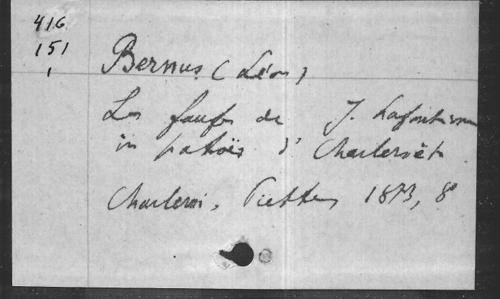 416
151
1
Bernus (Léon)
Les faufes de J. Lafontaine
in patoès d' Charlerwèt
Charleroi, Piette, 1873, 8°